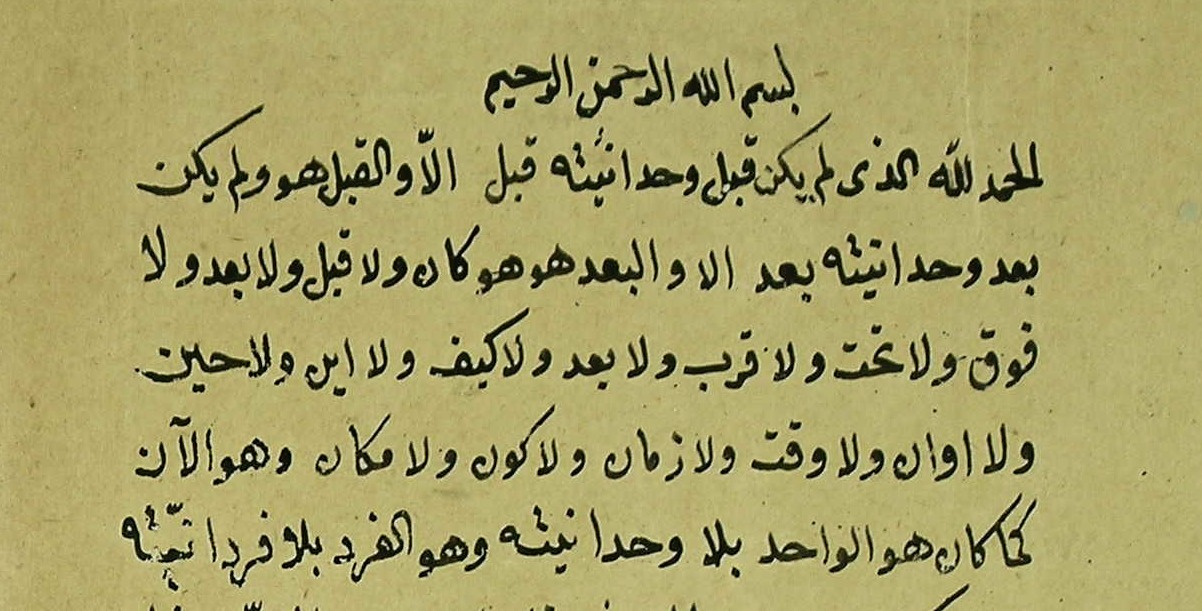 بسم الله الرحمن الرحيم
الحمد لله الذى لم يكن قبل وحدانيّته قبل الّا والقبل هو ولم يكن
بعد وحدانيته بعد الا والبعد هو هو كان ولا قبل ولا بعد ولا
فوق ولا تحت ولا قرب ولا بعد ولا كيف ولا اين ولا حين
ولا اوان ولا وقت ولا زمان ولا كون ولا مكان وهو الآن
كما كان هو الواحد بلا وحدانيته وهو الفرد بلا فردانيّته